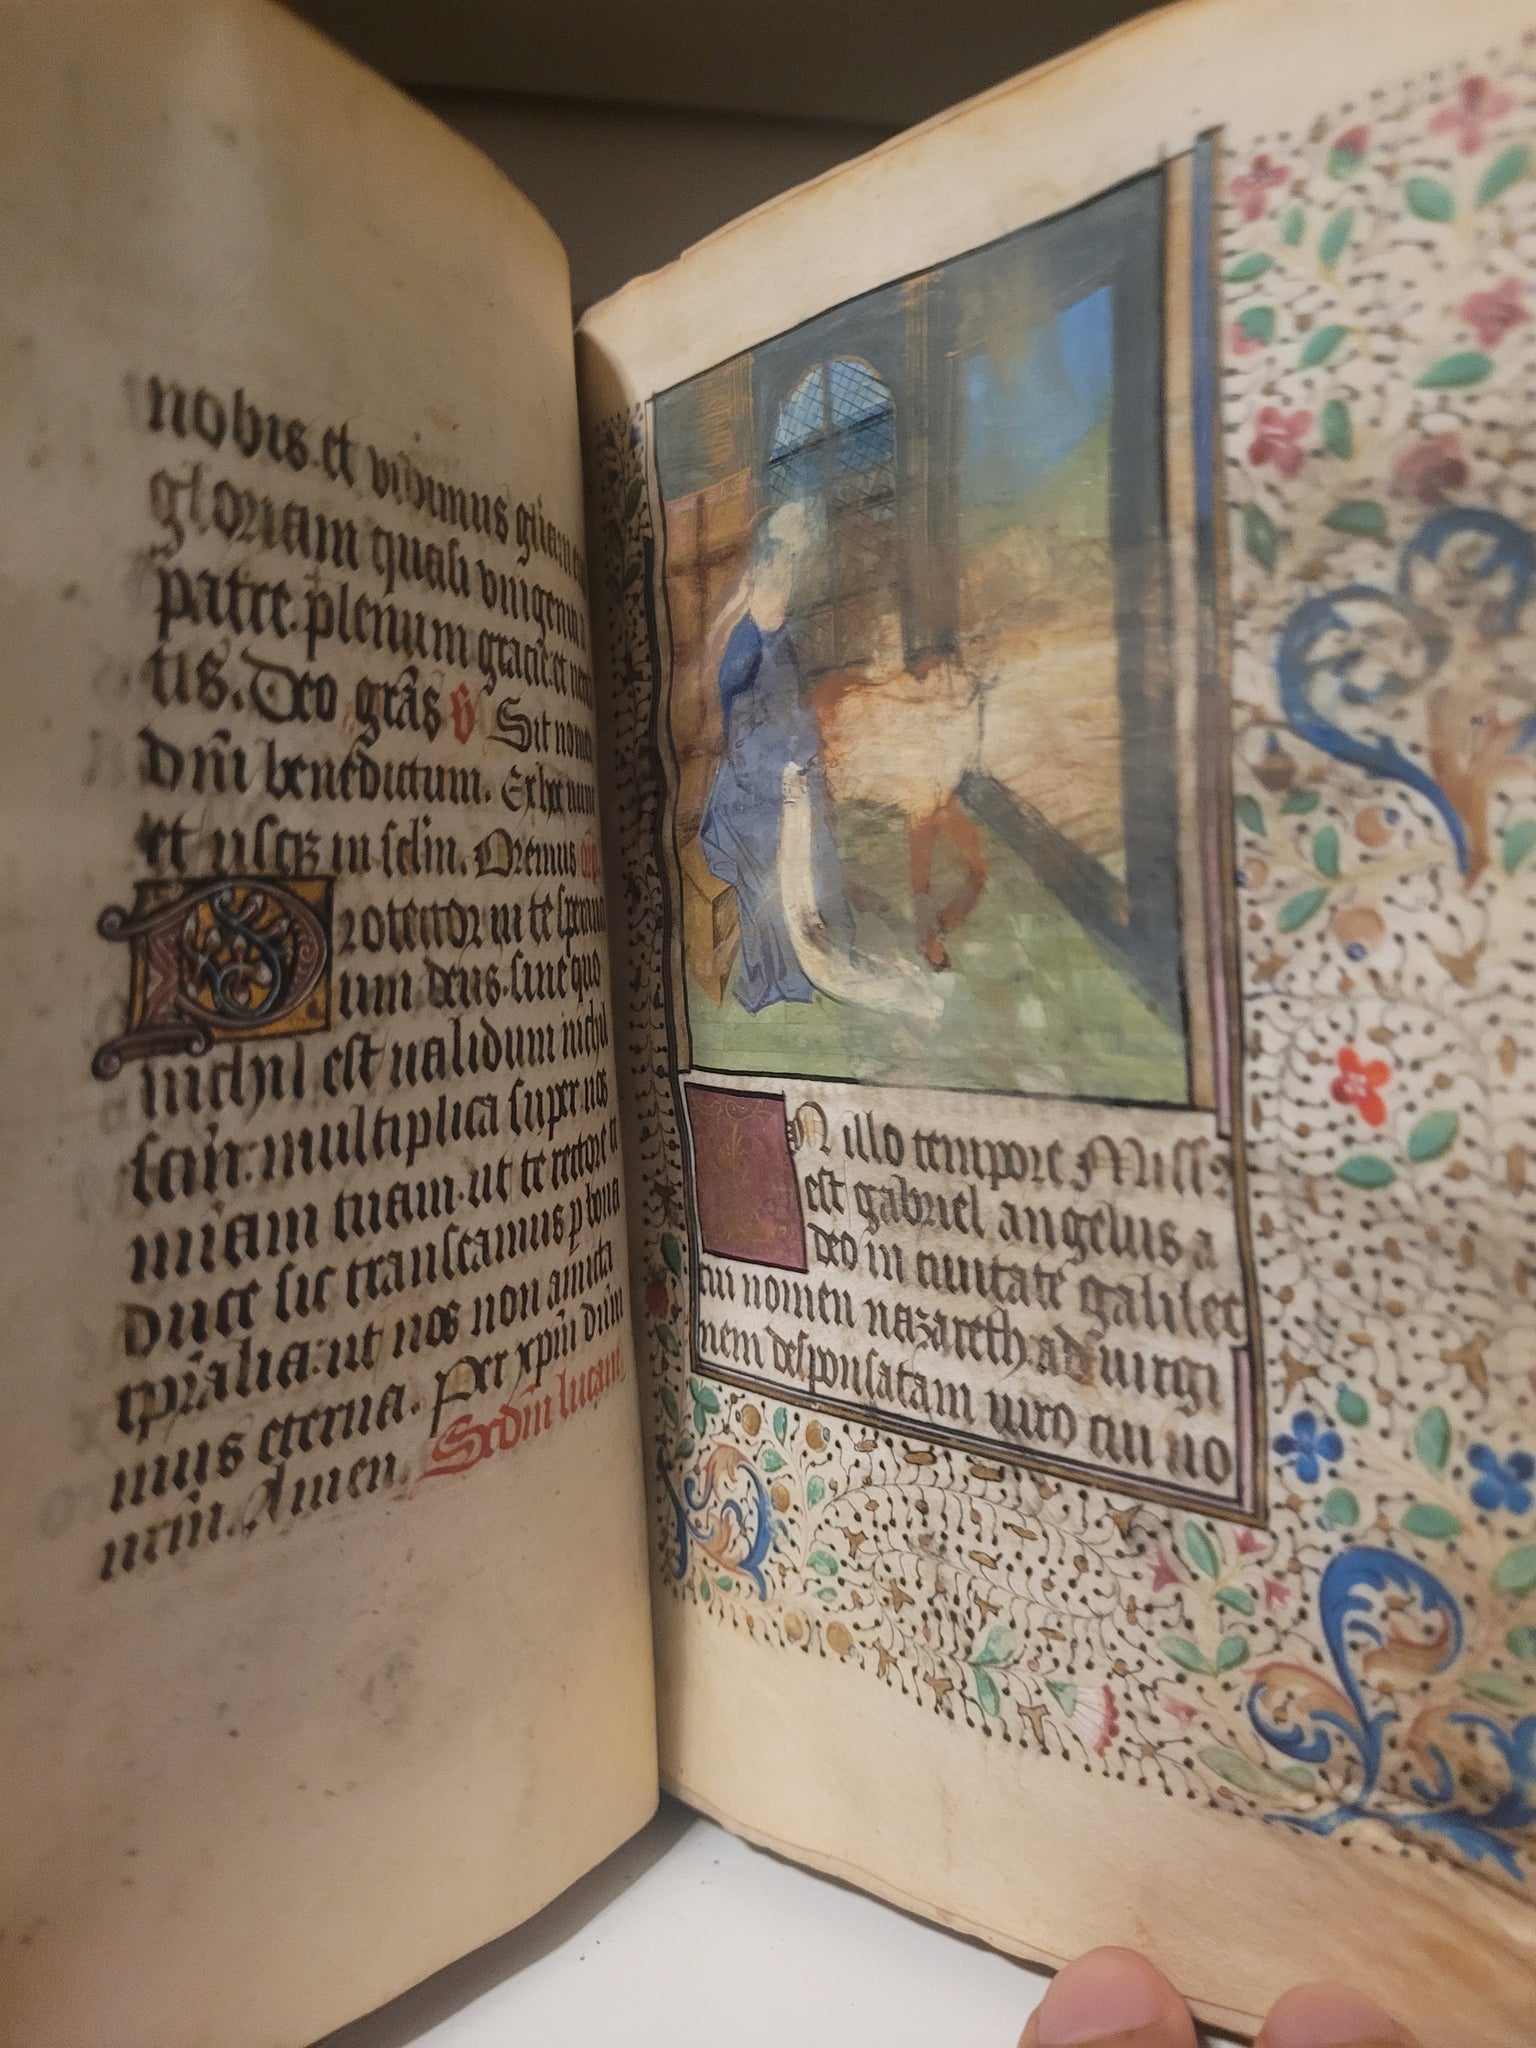 nobis. et vidimus gl̄iam
gloriam quasi vnigeniti a
patre. plenum gracie et
tis. Deo grās v̄ Sit nomen
dn̄i benedictum. Ex hoc nunc
et usqꝫ in sclm̄. Oremus
Protector in te speran
tium deus. sine quo
nichil est ualidum nichil
scm̄: multiplica super nos
miam tuam. ut te rectore te
duce sic transeamus p bona
tpr̄alia: ut nos non amitta
mus eterna. Per xpm̄ dn̄m
nrm̄. Amen. Scdm̄ lucam
In illo tempore Miss9
est gabriel angelus a
deo in ciuitatē galilee
cui nomen nazareth. ad uirgi
nem desponsatam uiro cui no